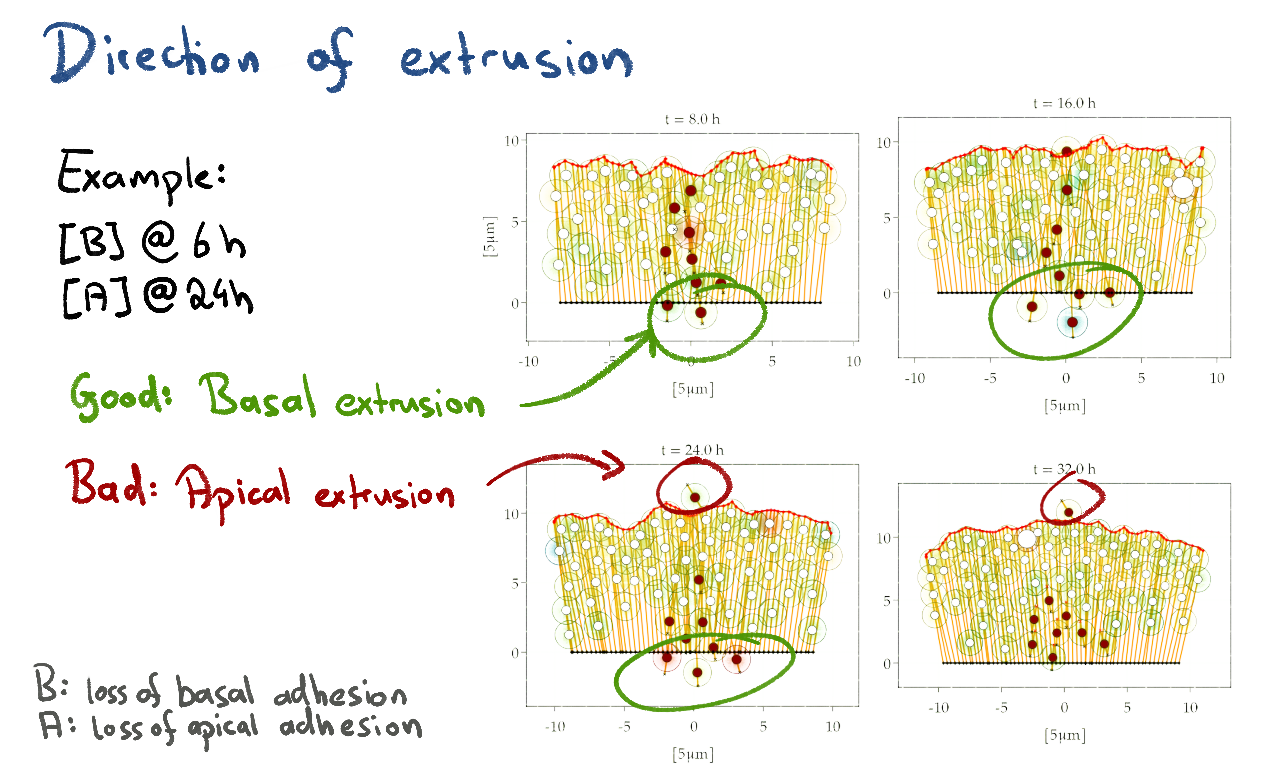 Direction of extrusion
Example:
[B] @ 6h
[A] @ 24h
Good: Basal extrusion
Bad: Apical extrusion
B: loss of basal adhesion
A: loss of apical adhesion
t = 8.0 h
10
5
0
[5μm]
-10
-5
0
5
10
[5μm]
t = 16.0 h
10
5
0
-10
-5
0
5
10
[5μm]
t = 24.0 h
10
5
0
-10
-5
0
5
10
[5μm]
t = 32.0 h
10
5
0
-10
-5
0
5
10
[5μm]